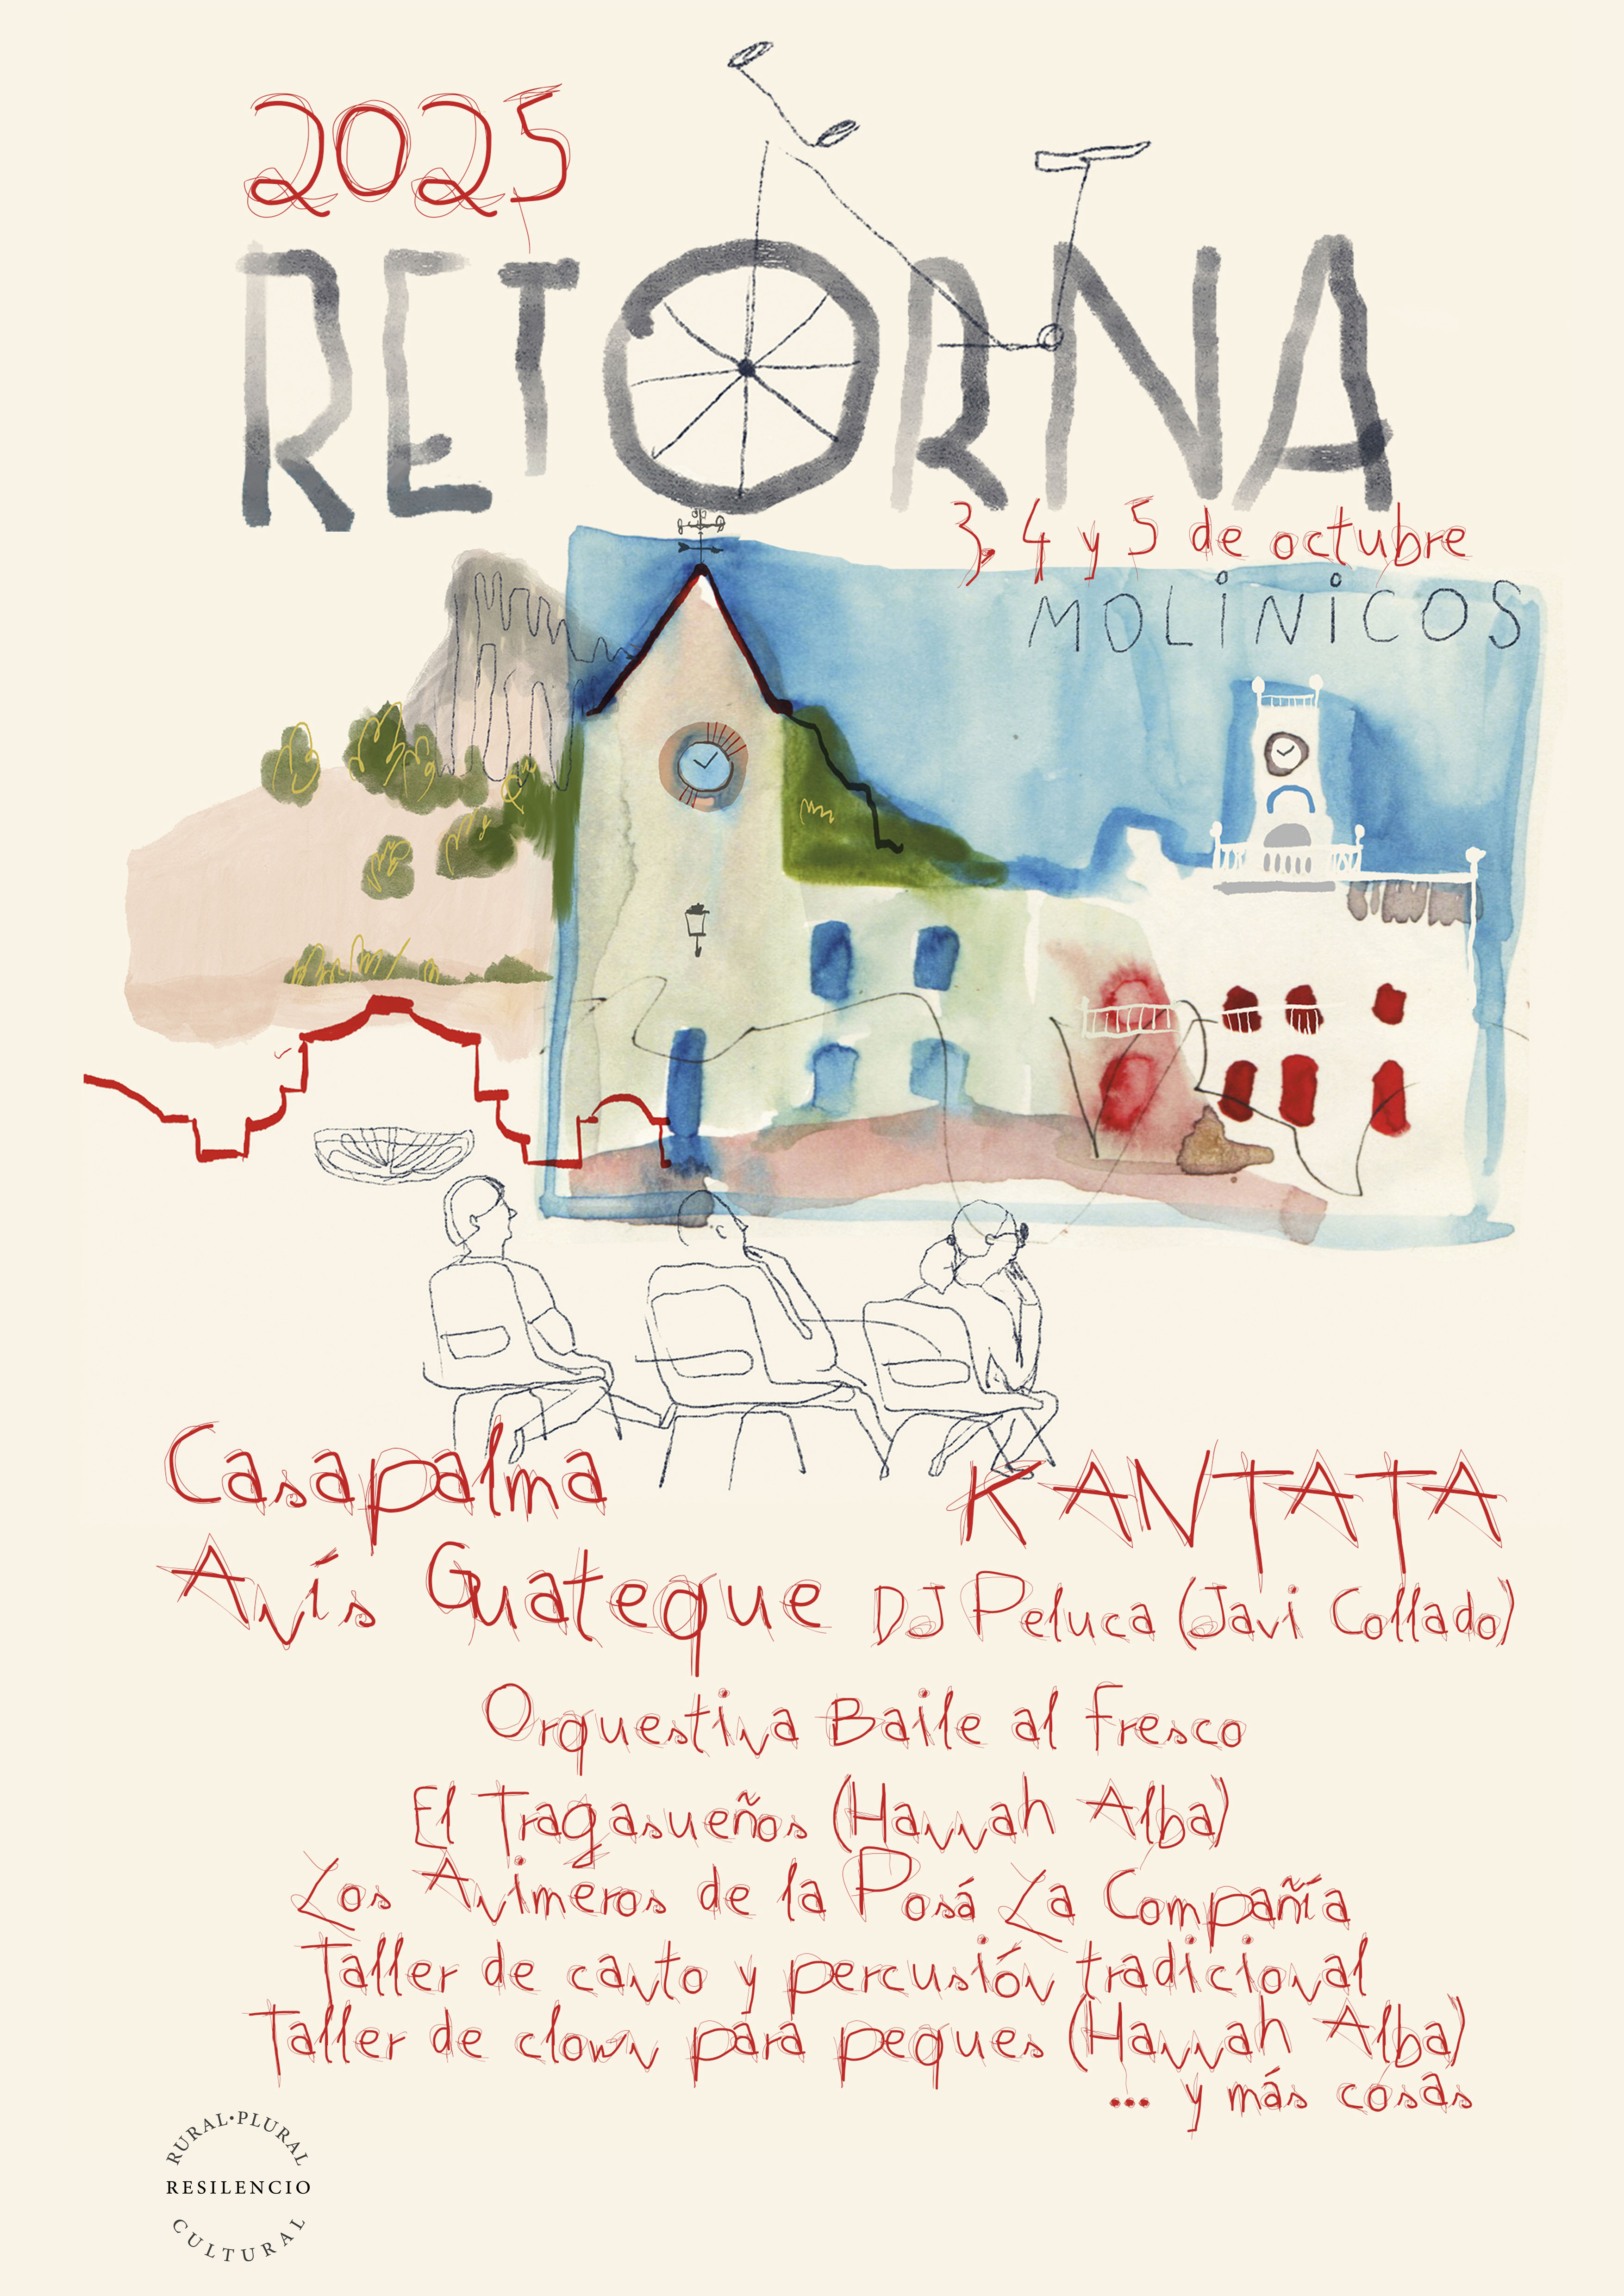 2025
RETORNA
3, 4 y 5 de octubre
MOLiNiCOS
Casapalma
KANTATA
Anís Guateque
DJ Peluca (Javi Collado)
Orquestina Baile al fresco
El Tragasueños (Hannah Alba)
Los Animeros de la Posá La Compañía
Taller de canto y percusión tradicional
Taller de clown para peques (Hannah Alba)
... y más cosas
RURAL·PLURAL
RESILENCIO
CULTURAL